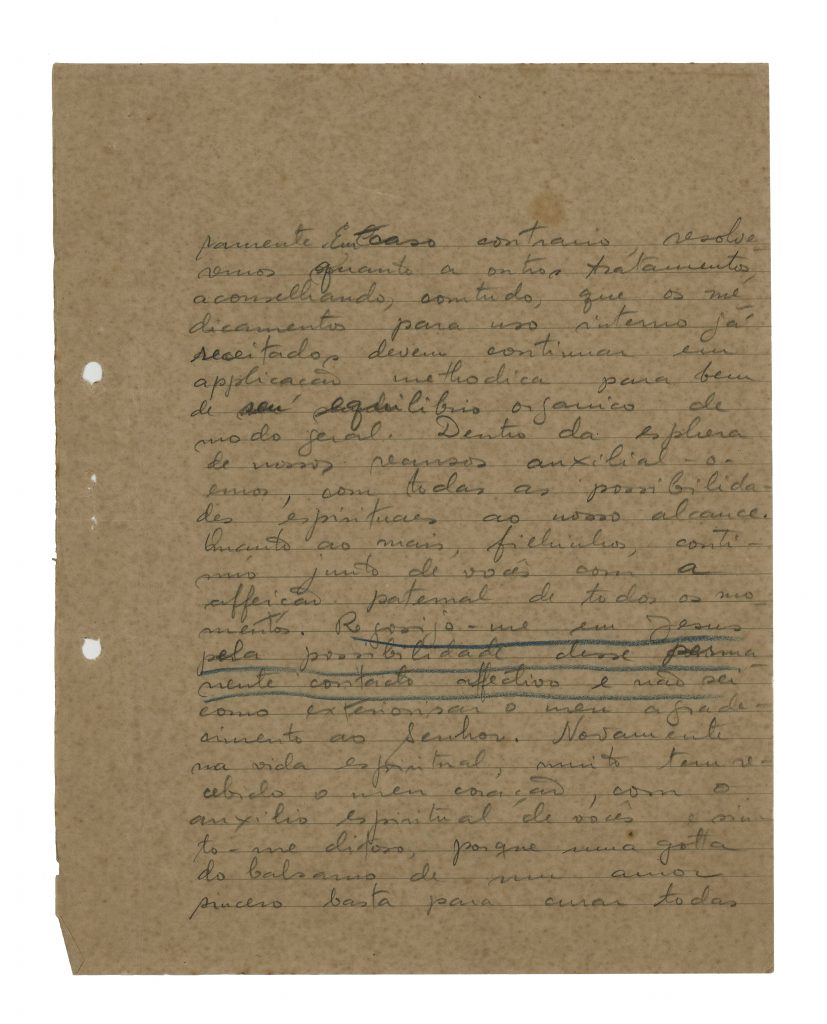 ramente. Em caso contrario, resolve-
remos quanto a outros tratamentos,
aconselhando, comtudo, que os me-
dicamentos para uso interno já
receitados devem continuar em
applicação methodica para bem
de seu equilibrio organico de
modo geral. Dentro da esphera
de nossos recursos auxilial-o-
emos, com todas as possibilida-
des espirituaes ao nosso alcance.
Quanto ao mais, filhinhos, conti-
nuo junto de vocês com a
affeição paternal de todos os mo-
mentos. Regosijo-me em Jesus
pela possibilidade desse perma-
nente contacto affectivo e não sei
como exteriorisar o meu agrade-
cimento ao Senhor. Novamente
na vida espiritual, muito tem re-
cebido o meu coração, com o
auxilio espiritual de vocês e sin-
to-me ditoso, porque uma gotta
do balsamo de um amor
sincero basta para curar todas